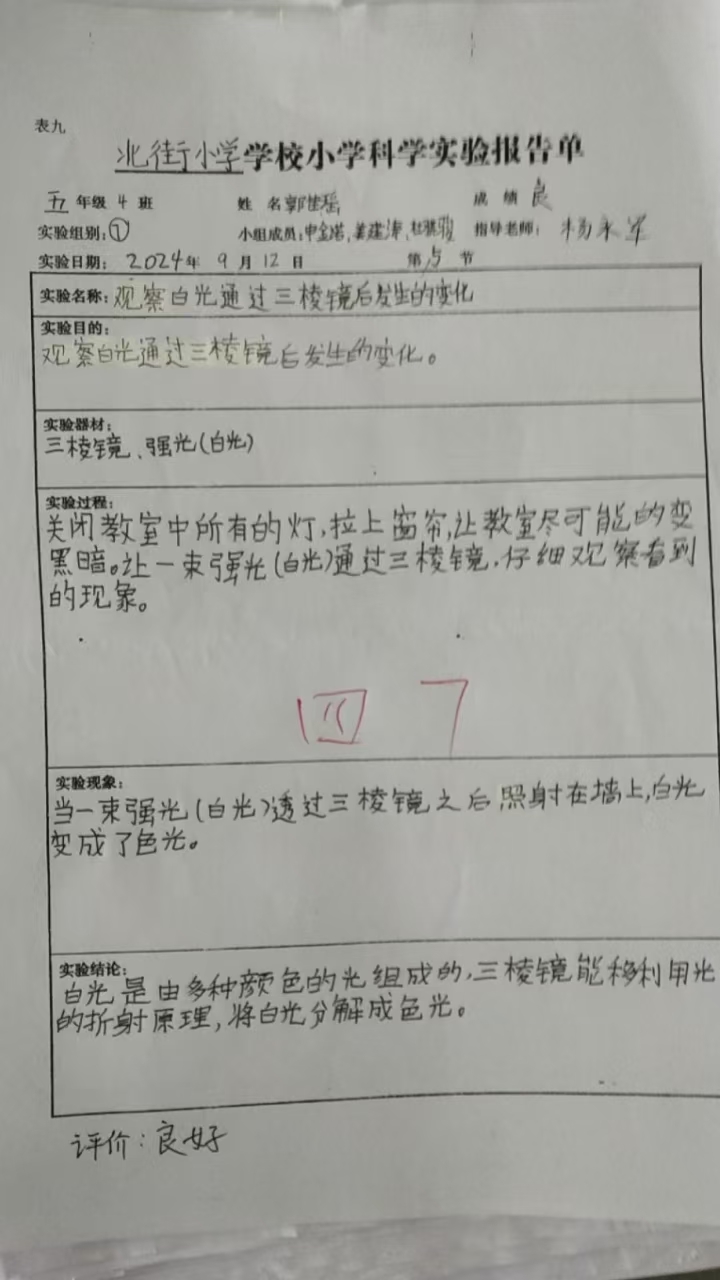 表九
北街小学学校小学科学实验报告单
五年级 4 班 姓 名 郭佳瑶 成 绩 良
实验组别:① 小组成员: 指导老师: 杨永军
实验日期: 2024年 9 月 12 日 第 5 节
实验名称:观察白光通过三棱镜后发生的变化
实验目的:
观察白光通过三棱镜后发生的变化。
实验器材:
三棱镜、强光(白光)
实验过程:
关闭教室中所有的灯,拉上窗帘,让教室尽可能的变
黑暗。让一束强光(白光)通过三棱镜,仔细观察看到
的现象。
四 7
实验现象:
当一束强光(白光)透过三棱镜之后,照射在墙上,白光
变成了色光。
实验结论:
白光是由多种颜色的光组成的,三棱镜能够利用光
的折射原理,将白光分解成色光。
评价:良好